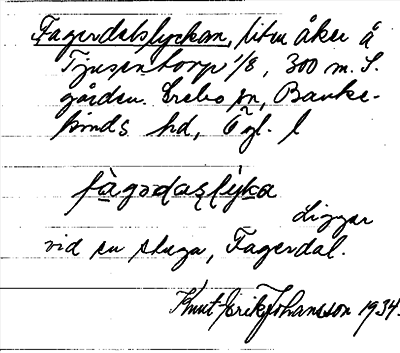 Fagerdalslyckan, liten åker å
Tjusentorp 1/8, 300 m. S.
gården. Örebo sn, Banke-
kinds hd, Ögl. l
fàgədaslyka
Ligger
vid en stuga, Fagerdal.
Knut-Erik Johansson 1934.